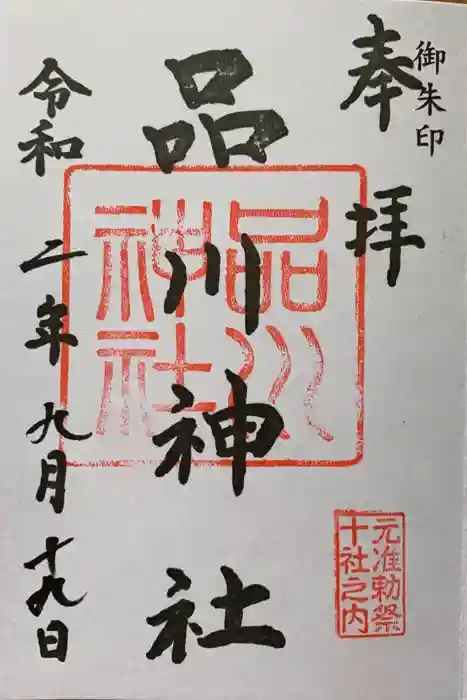 御朱印
奉拝
品川神社
令和二年九月十九日
品川
神社
元准勅祭
十社之内